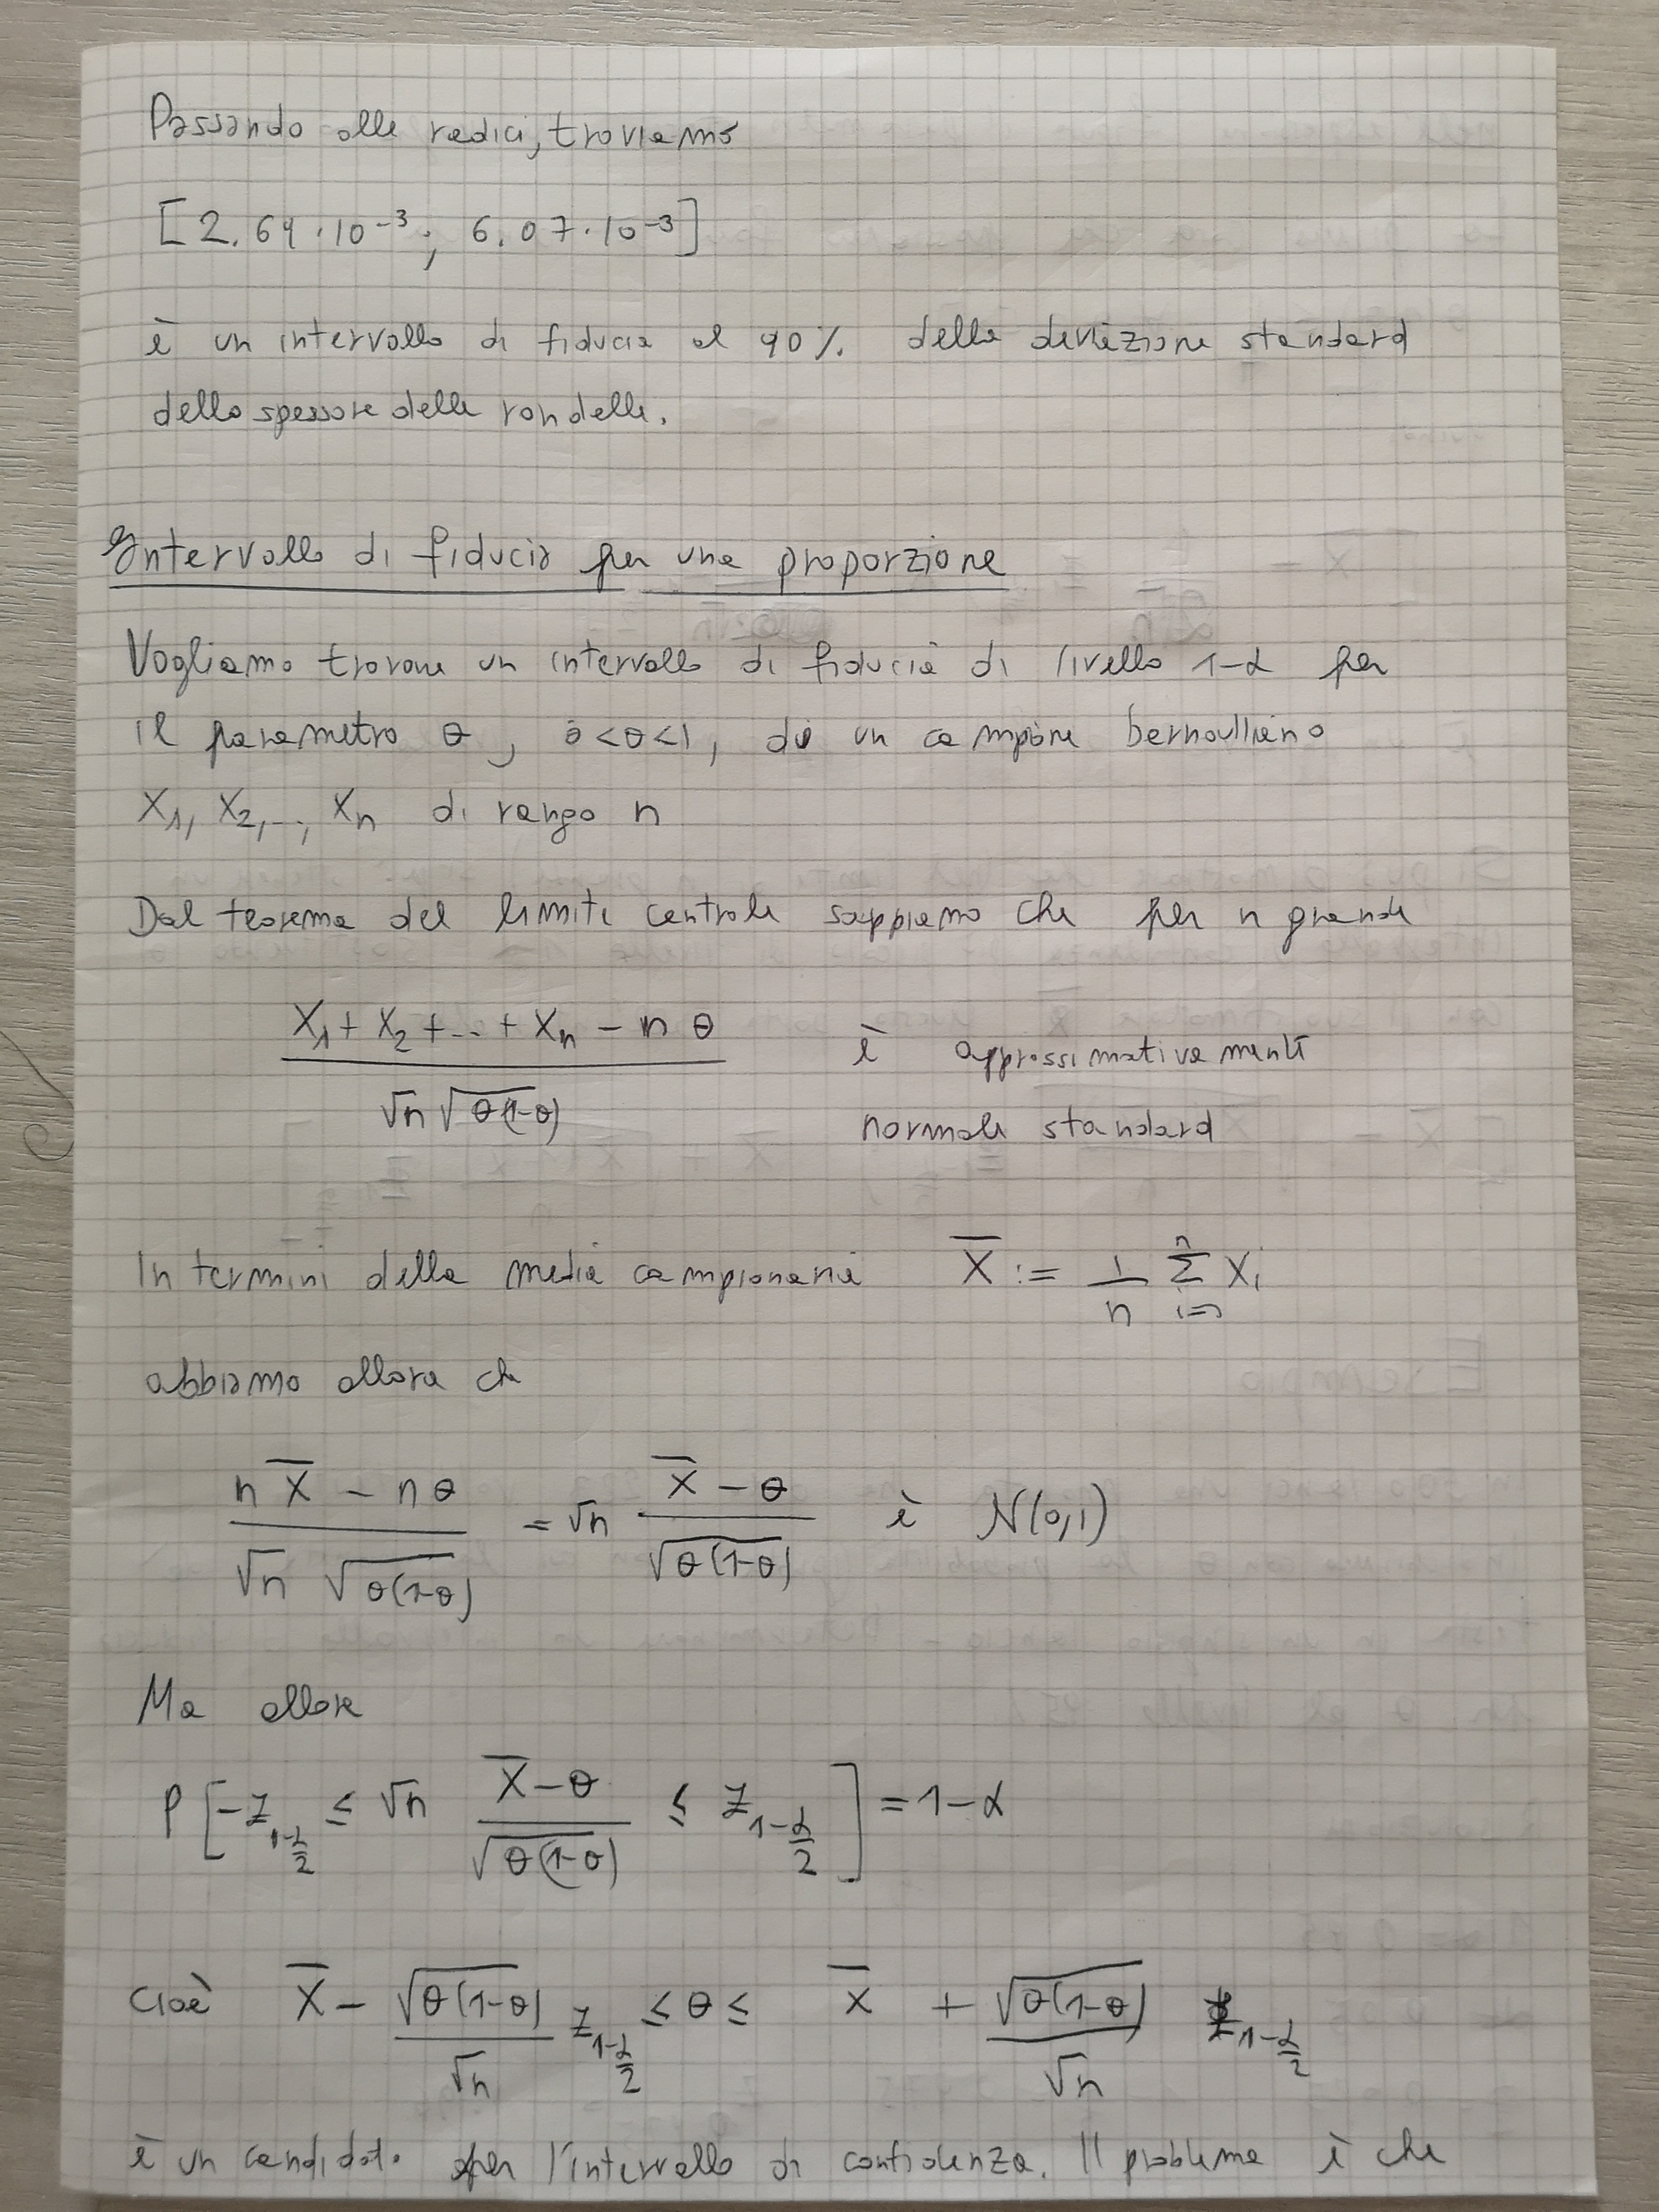 Passando alle radici, troviamo
[2.64·10⁻³; 6.07·10⁻³]
è un intervallo di fiducia al 90% della deviazione standard
dello spessore delle rondelle.
Intervallo di fiducia per una proporzione
Vogliamo trovare un intervallo di fiducia di livello 1-α per
il parametro θ, 0<θ<1, di un campione bernoulliano
X₁, X₂,..., Xₙ di rango n
Dal teorema del limite centrale sappiamo che per n grande
(X₁ + X₂ + ... + Xₙ - nθ) / (√n √(θ(1-θ))) è approssimativamente
normale standard
In termini della media campionaria X̄ := 1/n Σᵢ₌₁ⁿ Xᵢ
abbiamo allora che
(nX̄ - nθ) / (√n √(θ(1-θ))) = √n (X̄ - θ) / √(θ(1-θ)) è N(0,1)
Ma allora
P[-z_{1-α/2} ≤ √n (X̄-θ) / √(θ(1-θ)) ≤ z_{1-α/2}] = 1-α
Cioè X̄ - √(θ(1-θ)) / √n z_{1-α/2} ≤ θ ≤ X̄ + √(θ(1-θ)) / √n z_{1-α/2}
è un candidato per l'intervallo di confidenza. Il problema è che